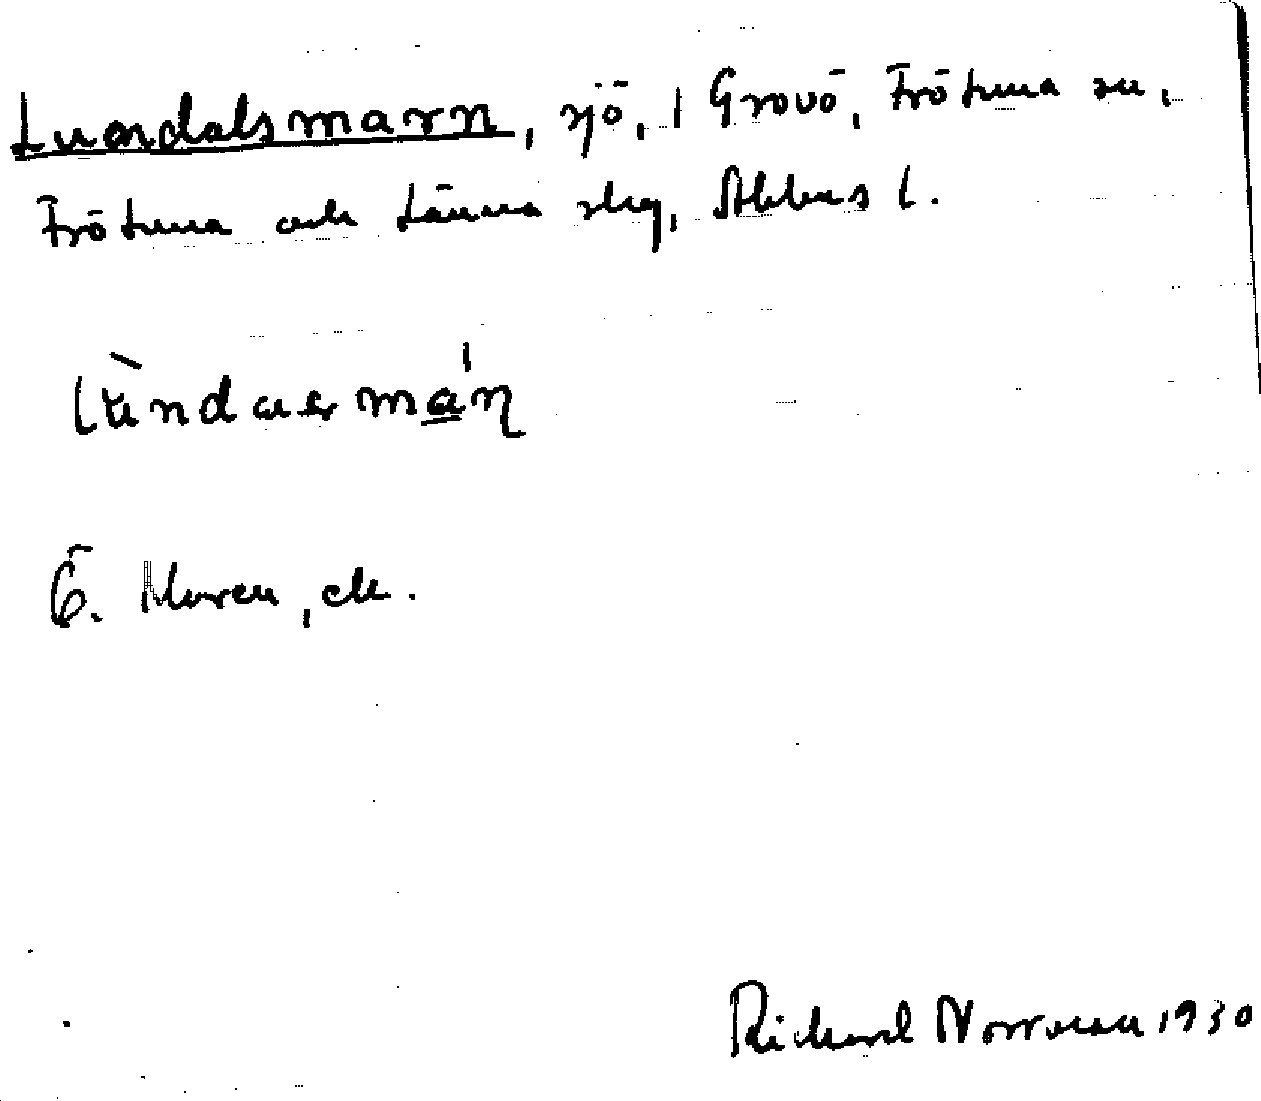 Lundalsmarn, sjö, i Gråvö, Frötuna sn,
Frötuna och Länna skg, Sthlms l.
E. Moren, ek.
Richard Norrman 1930